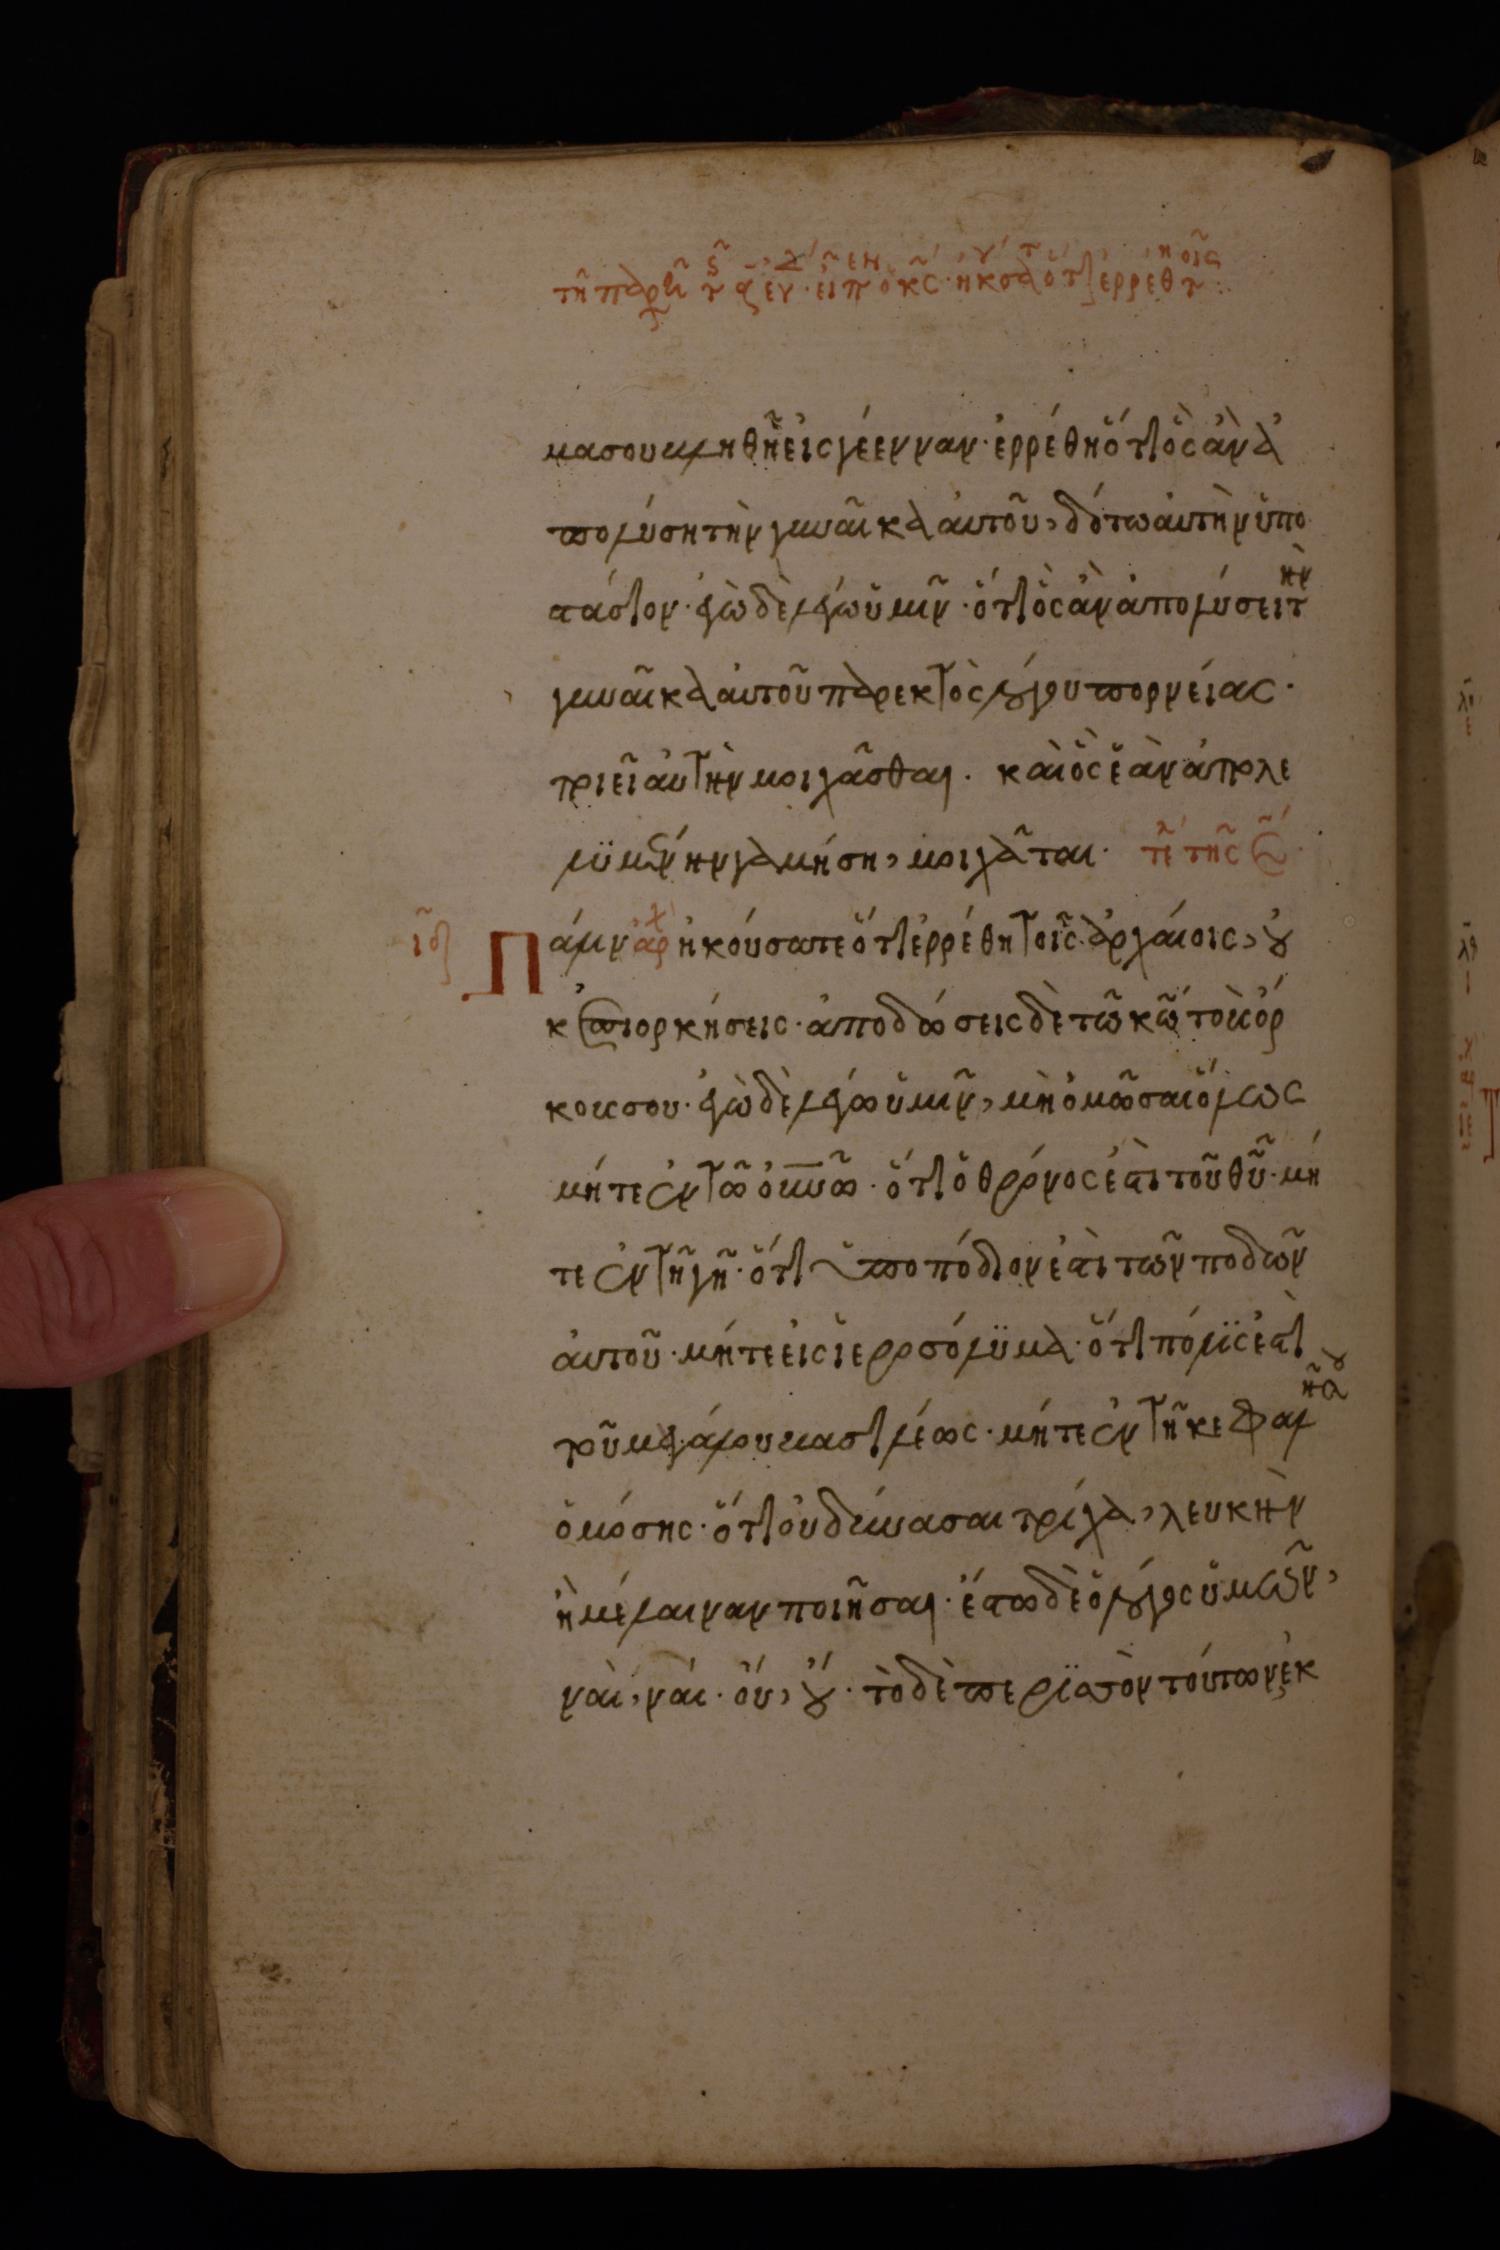 μα σου βληθῆ εἰς γέενναν· ἐρρέθη ὅτι ὃς ἂν ἀ
πολύση τὴν γυναῖκα ἀυτοῦ, δότω ἀυτὴν ὑπο
στάσιον· ἐγὼ δὲ λέγω ὑμῖν· ὅτι ὃς ἂν ἀπολύσει τὴν
γυναῖκα ἀυτοῦ παρεκτὸς λόγου πορνείας·
ποιεῖ ἀυτὴν μοιχᾶσθαι. καὶ ὃς ἐὰν ἀπολε
λϋμένην γαμήση, μοιχᾶται· τῆς
ιδ Πάλιν ἀρχ ἠκούσατε ὅτι ἐρρέθη τοῖς ἀρχάιοις, ὀυ
κ ἐπιορκήσεις· ἀποδώσεις δὲ τῶ κῶ τοὺς ὅρ
κους σου· ἐγὼ δὲ λέγω ὑμῖν, μὴ ὀμῶσαι ὅλως
μήτε ἐν τῶ ὀυνῶ· ὅτι θρόνος ἐστὶ τοῦ θῦ· μή
τε ἐν τῆ γῆ· ὅτι ὑποπόδιον ἐστὶ τῶν ποδῶν
ἀυτοῦ· μήτε εἰς ἱεροσόλϋμα· ὅτι πόλϊς ἐστὶ
τοῦ μεγάλου βασιλέως· μήτε ἐν τῆ κεφαλῆ σου
ὀμόσης· ὅτι ὀυ δύνασαι τρίχα, λευκὴν
ἢ μέλαιναν ποιῆσαι· ἔστω δὲ ὁ λόγος ὑμῶν,
νὰι, νάι· ὀύ, ὀύ· τὸ δὲ περϊσσὸν τούτων ἐκ